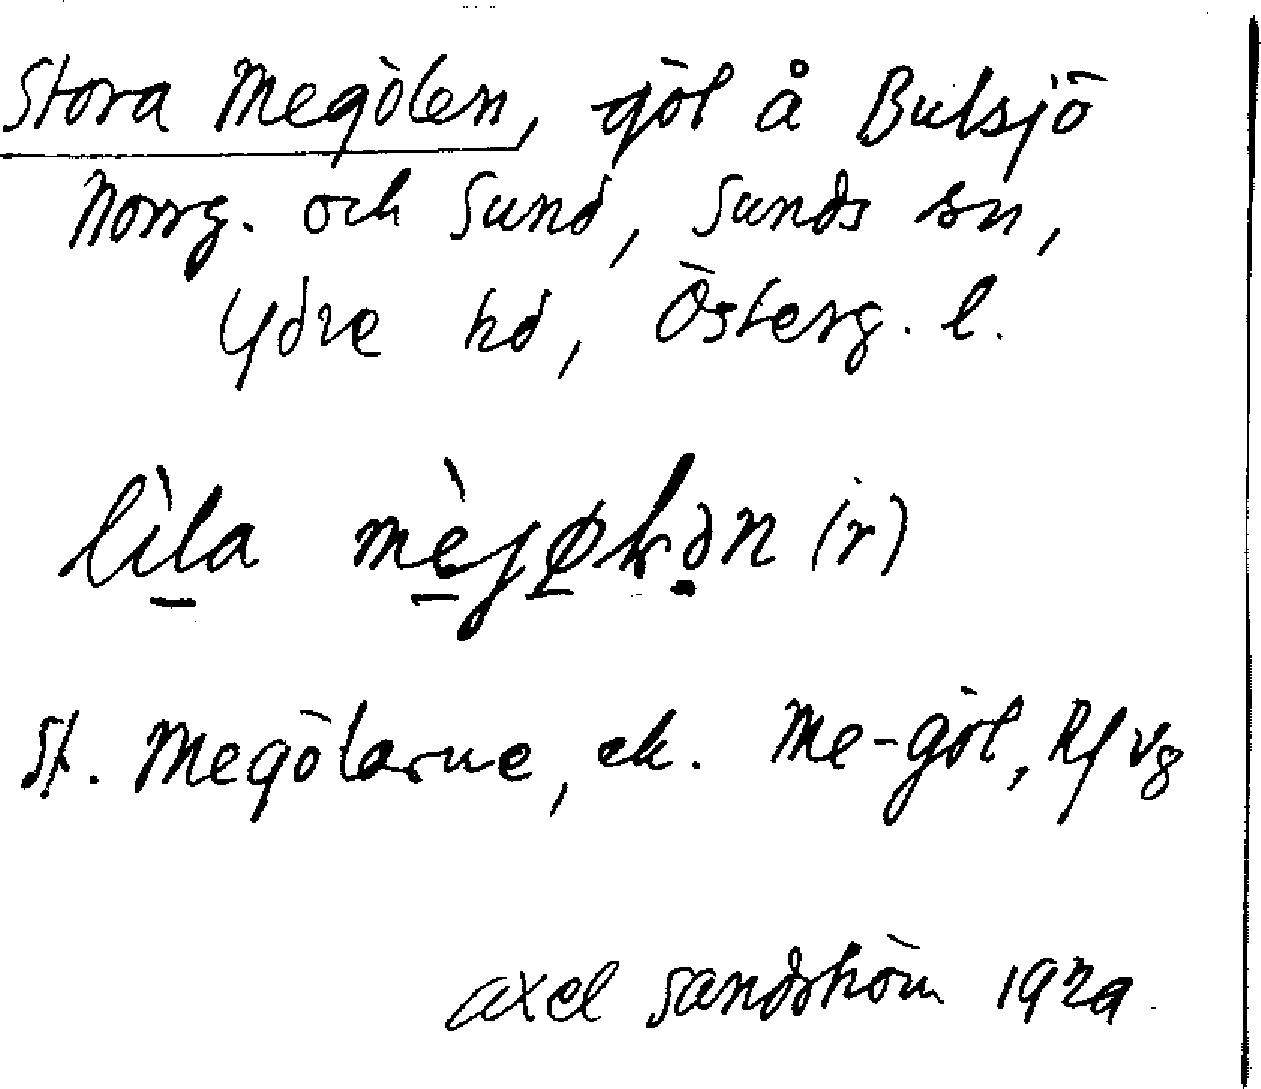 Stora Megölen, göl å Bulsjö
Norrg. och Sund, Sunds sn,
Ydre hd, Österg. l.
lìla mèjøkən (r)
St. Megölarne, ek. Me-göl, Rf vg
Axel Sandström 1929